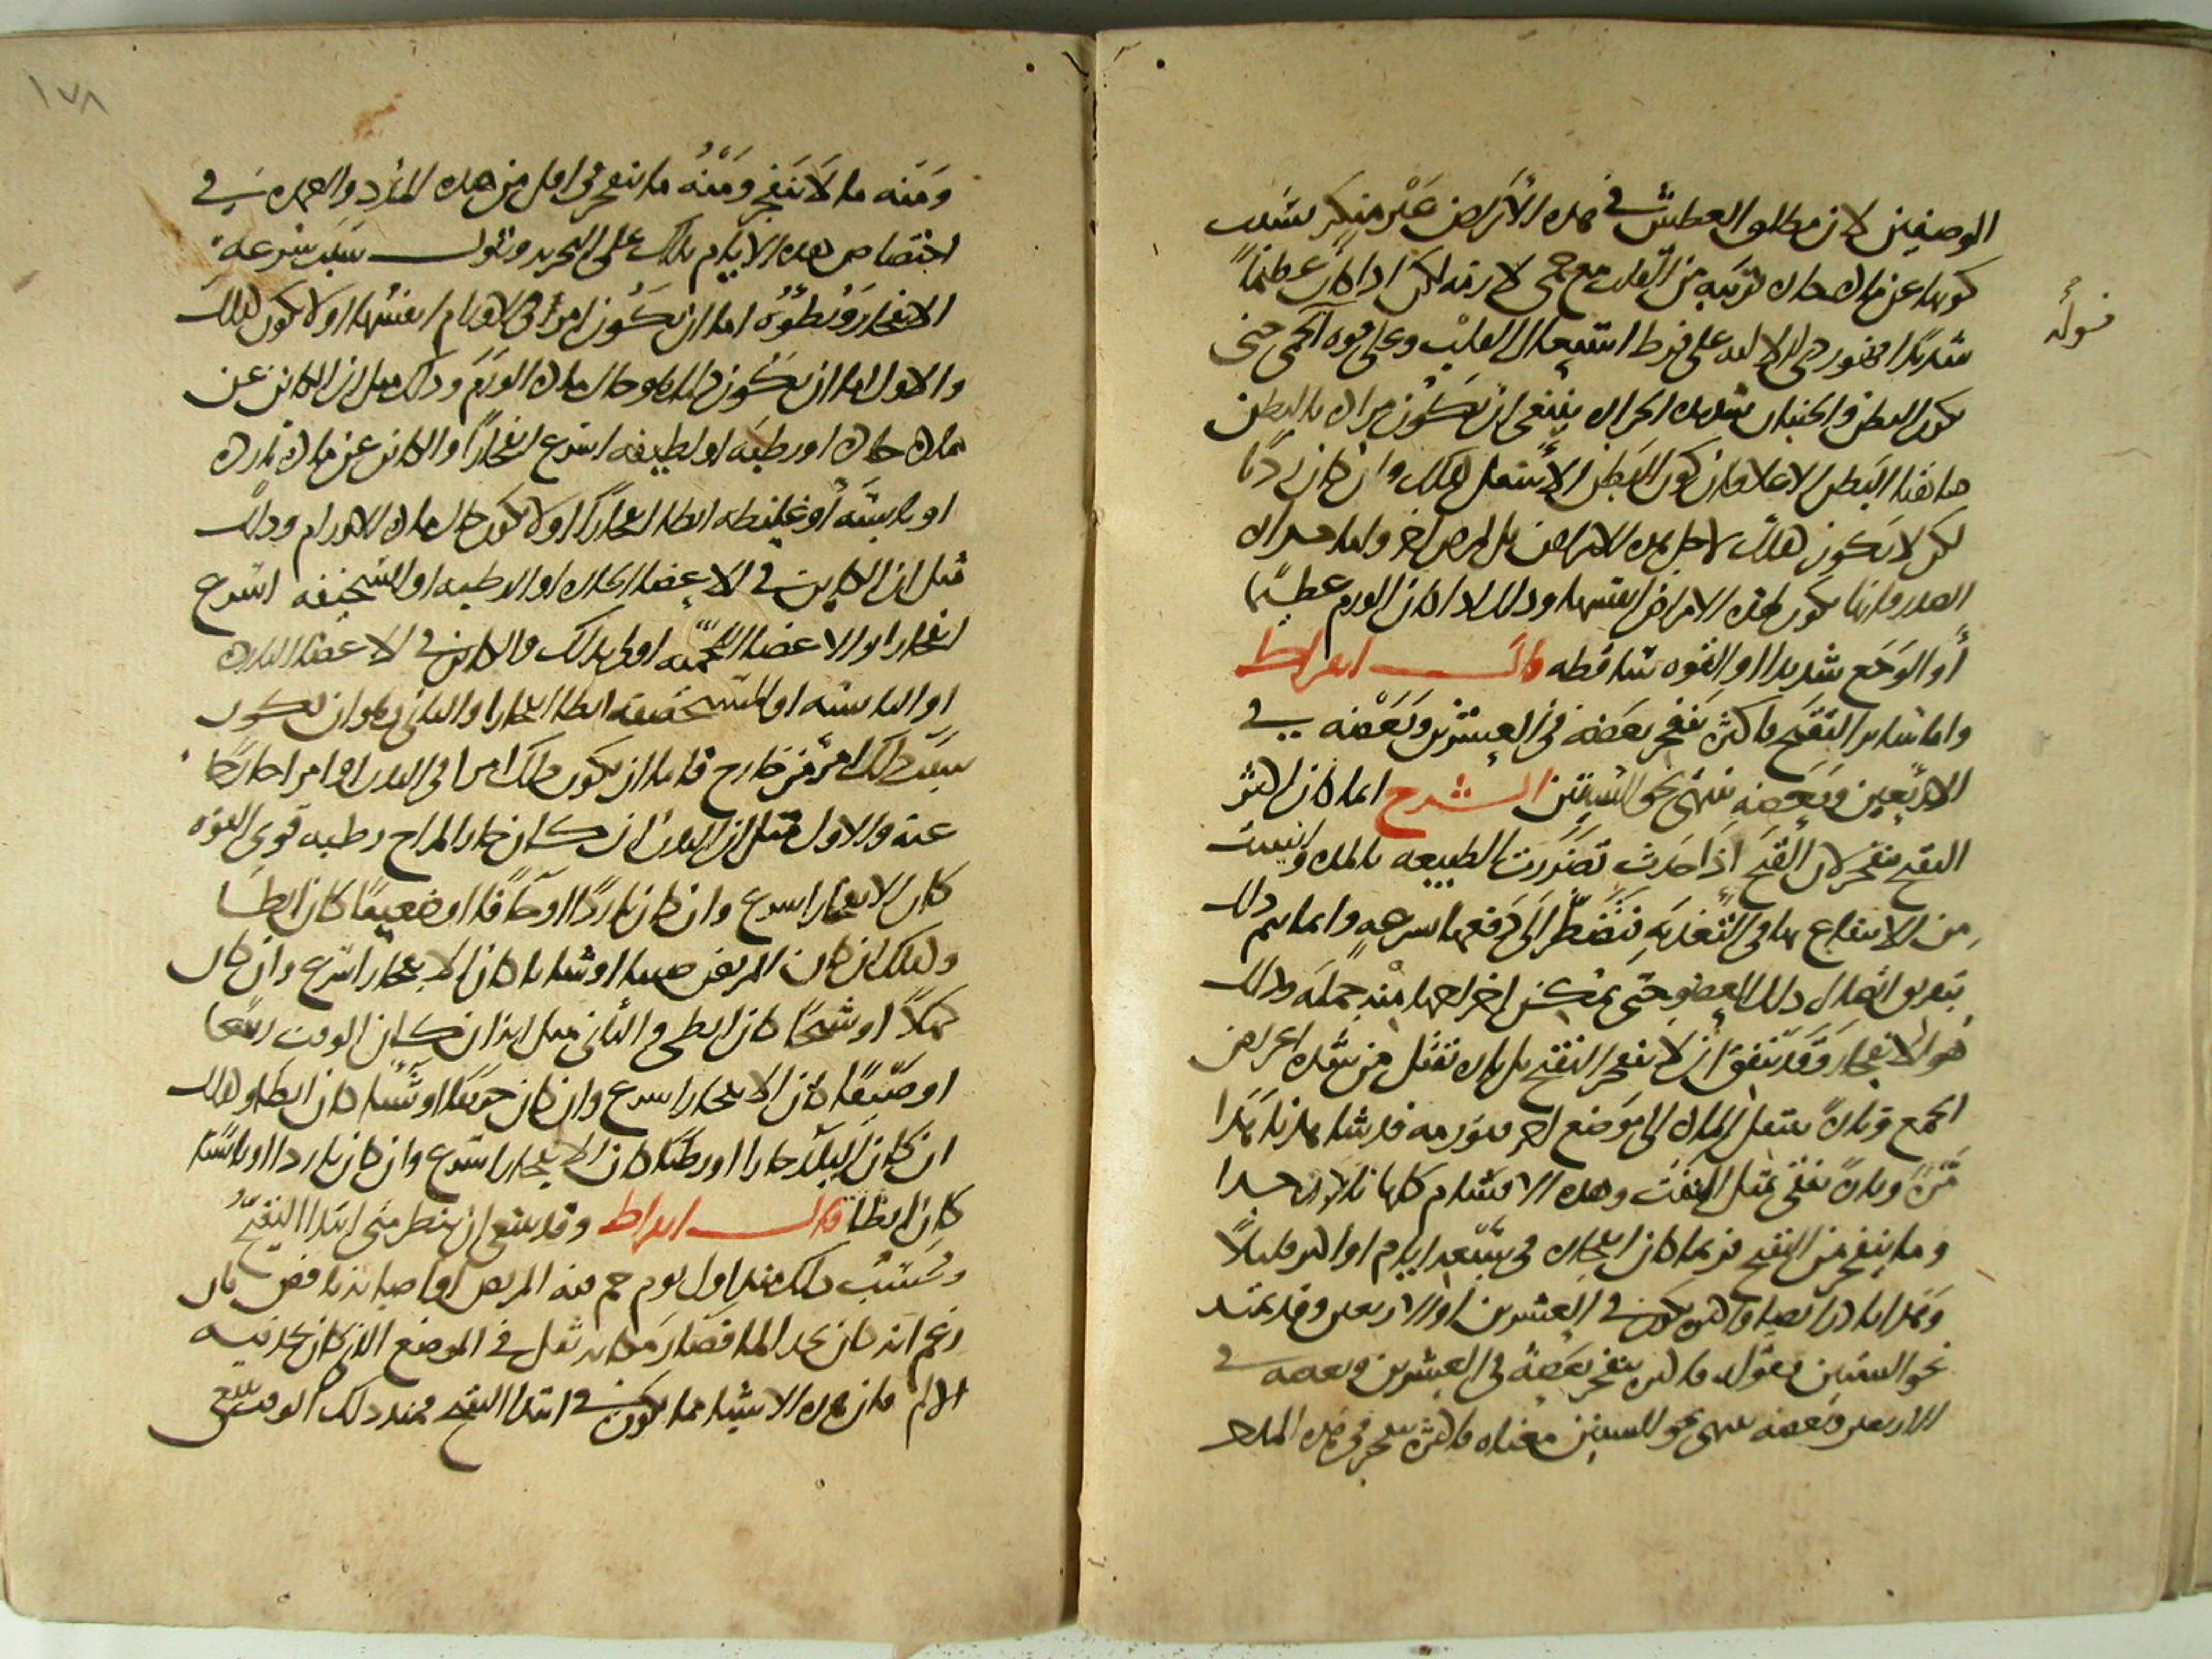 الوصفين لان مطلق العطش في هذه الأمراض غير منكر بسبب
كونها عن مادة حارة قريبة من القلب مع حمى لازمة لكن اذا كان عظيماً
شديدًا دل على فرط اشتعال القلب وعلى قوة الحمى حتى
يكون البطن والجنبان شديدة الحرارة ينبغي ان يكون مراده بالبطن
هاهنا البطن الاعلا فان كون البطن الأسفل كذلك وان كان رديًا
لكن لا يكون ذلك لاجل هذه الامراض بل لمرض اخر واما حرارة
الصدر فانها تكون لهذه الامراض انفسها وذلك اذا كان الورم عظيمًا
أو الوجع شديدا او القوة ساقطة قال ابقراط
واما سائر التقيح فاكثره ينفجر بعضه في العشرين وبعضه في
الاربعين وبعضه ينتهي نحو الستين الشرح انما كان اكثر
التقيح ينفجر لان القيح اذا حدث تضررت الطبيعة بالمدة وايست
من الانتفاع بها في التغذية فتضطر الى دفعها بسرعة وانما يتم ذلك
بتفرق اتصال ذلك العضو حتى يمكن اخراجها منه جملة وذلك
هو الانفجار وقد يتفق ان لا ينفجر التقيح بل تارة تقتل من شدة اعراض
الجمع وتارة تنتقل المادة الى موضع اخر فتورمه قد شاهدنا هذا
مرة وتارة تنقى بمثل النفث وهذه الاقسام كلها نادرة جدا
وما ينفجر من التقيح فربما كان انفجاره في سبعة ايام او اكثر قليلاً
وهذا نادر ايضا واكثره يكون في العشرين او الاربعين وقد يمتد
نحو الستين فقوله فاكثره ينفجر بعضه في العشرين وبعضه في
الاربعين وبعضه ينتهي نحو الستين معناه فاكثره ينفجر في هذه المدد
قوله
١٧٨
ومنه ما لا ينفجر ومنه ما ينفجر في اقل من هذه المدد والعمدة في
اختصاص هذه الايام بذلك على التجربة ونقول سبب سرعة
الانفجار وبطؤه اما ان يكون امرا في الاورام انفسها او لا يكون كذلك
والاول اما ان يكون ذلك هو حال مادة الورم وذلك مثل ان الكاين عن
مادة حارة او رطبة او لطيفة اسرع انفجارًا والكاين عن مادة باردة
او يابسة أو غليظة ابطا انفجارًا او لا يكون حال مادة الاورام وذلك
مثل ان الكاين في الاعضا الحارة او الرطبة او السخيفة اسرع
انفجارا والاعضا اللحمية اولى بذلك والكاين في الاعضا الباردة
او اليابسة او المستحصفة ابطا انفجارا والثاني وهو ان يكون
سبب ذلك امر من خارج فاما ان يكون ذلك امرا في البدن او امرا خارجًا
عنه والاول مثل ان البدن ان كان حار المزاج رطبه قوي القوة
كان الانفجار اسرع وان كان باردًا او جافًا او ضعيفًا كان ابطا
وكذلك ان كان المريض صبيا او شابا كان الانفجار اسرع وان كان
كهلاً او شيخًا كان ابطى والثاني مثل انه ان كان الوقت ربيعًا
او صيفًا كان الانفجار اسرع وان كان خريفًا او شتاء كان ابطا وكذلك
ان كان البلد حارا او رطبًا كان الانفجار اسرع وان كان باردا او يابسًا
كان ابطا قال ابقراط وقد ينبغي ان ينظر متى ابتدا التقيح
ويحسب ذلك منذ اول يوم حم فيه المريض او اصابه نافض بان
زعم انه كان يجد الما فصار مكانه ثقل في الموضع الذي كان يجد فيه
الالم فان هذه الاشيا مما يكون في ابتدا التقيح فمنذ ذلك الوقت ينبغي